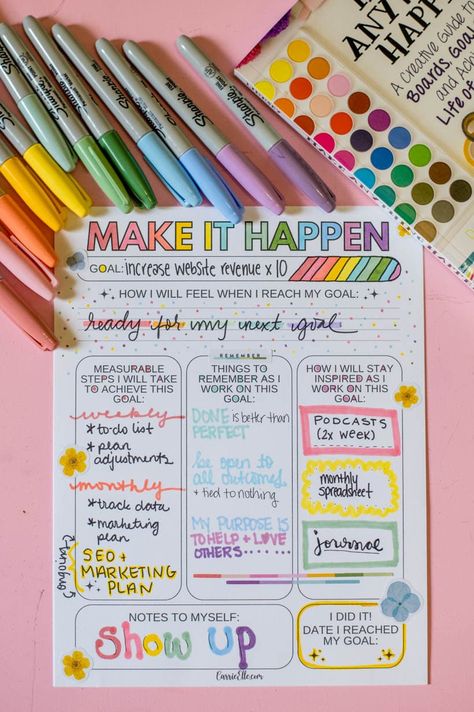 Sharpie
Sharpie
Sharpie
Sharpie
ANY
HAPP
A Creative Guide to
Boards, Goal
and
Life of
MAKE IT HAPPEN
GOAL: increase website revenue x 10
HOW I WILL FEEL WHEN I REACH MY GOAL:
ready for my next goal
REMEMBER
MEASURABLE
STEPS I WILL TAKE
TO ACHIEVE THIS
GOAL:
weekly
*to-do list
*plan
adjustments
monthly
*track data
*marketing
plan
ongoing
SEO +
MARKETING
PLAN
THINGS TO
REMEMBER AS I
WORK ON THIS
GOAL:
DONE is better than
PERFECT
be open to
all outcomes
+ tied to nothing
MY PURPOSE IS
TO HELP + LOVE
OTHERS
HOW I WILL STAY
INSPIRED AS I
WORK ON THIS
GOAL:
PODCASTS
(2x week)
monthly
spreadsheet
journal
NOTES TO MYSELF:
Show UP
I DID IT!
DATE I REACHED
MY GOAL:
CarrieElle.com